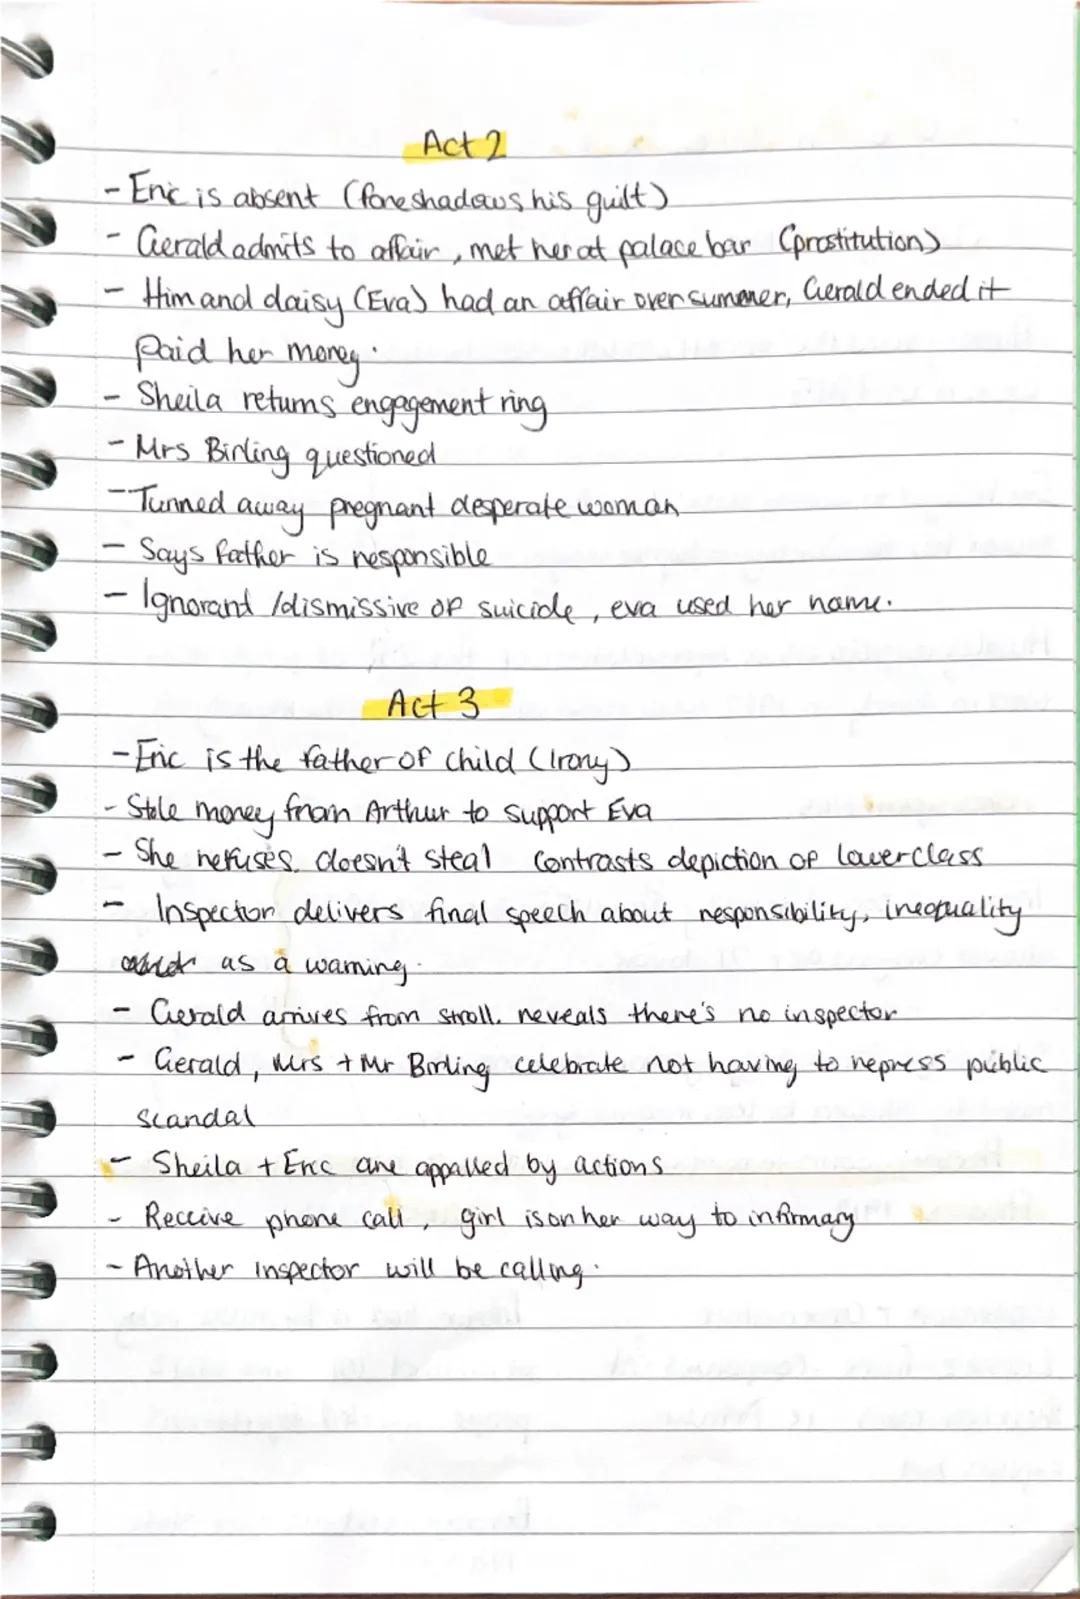 Act 2
- Eric is absent (foreshadows his guilt)
- Gerald admits to affair, met her at palace bar (prostitution)
- Him and daisy (Eva) had an affair over summer, Gerald ended it
paid her money.
- Sheila returns engagement ring
- Mrs Birling questioned
- Turned away pregnant desperate woman
- Says father is responsible
- Ignorant /dismissive of suicide, eva used her name.
Act 3
- Eric is the father of child (Irony)
- Stole money from Arthur to support Eva
- She refuses. doesn't steal contrasts depiction of lowerclass
- Inspector delivers final speech about responsibility, inequality
as a warning.
- Gerald arrives from stroll. reveals there's no inspector
- Gerald, Mrs + Mr Birling celebrate not having to repress public
scandal
- Sheila + Eric are appalled by actions
- Receive phone call, girl is on her way to infirmary
- Another inspector will be calling.